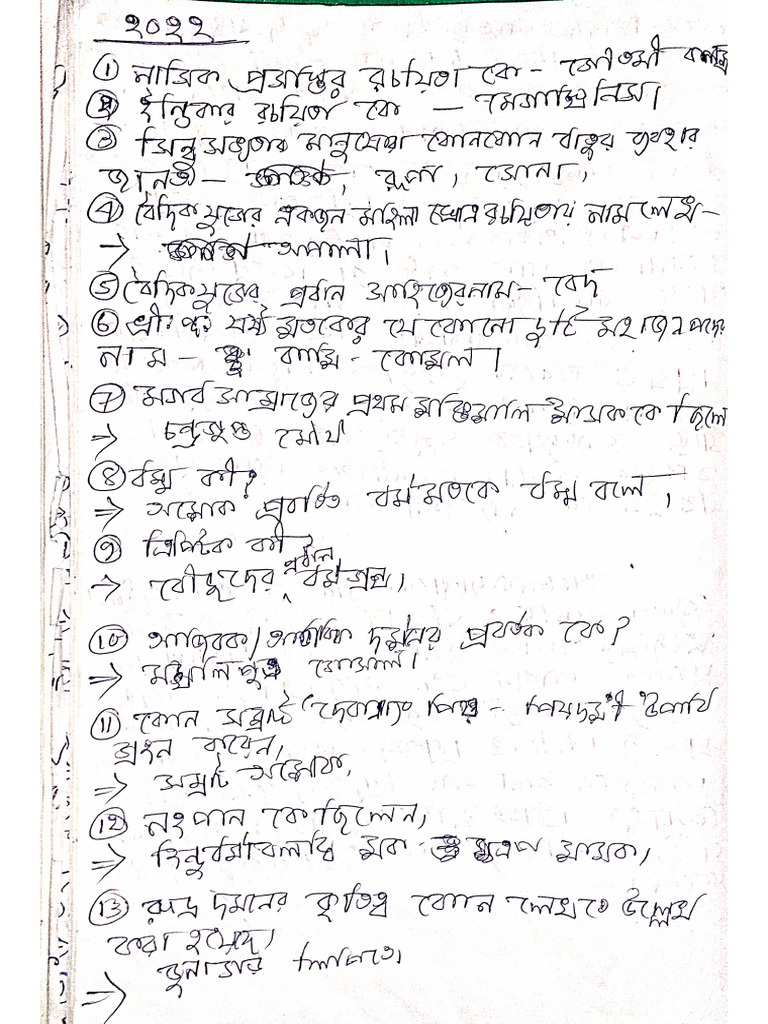 ২০২২
① নাসিক প্রসাস্তির রচয়িতা কে - গৌতমী
② ইন্ডিকার রচয়িতা কে — মেগাস্থিনিস।
③ সিন্ধু সভ্যতার মানুষেরা কোন কোন ধাতুর ব্যবহার
জানত - রূপা, সোনা,
④ বৈদিক যুগের একজন মহিলা স্তোত্র রচয়িতার নাম লেখ -
→ অপালা।
⑤ বৈদিক যুগের প্রধান সাহিত্যের নাম - বেদ
⑥ খ্রীঃ পূঃ ষষ্ঠ শতকের যে কোনো দুটি মহাজনপদের
নাম - কাশি - কোশল।
⑦ মগধ সাম্রাজ্যের প্রথম শক্তিশালি শাসক কে ছিলে
⇒ চন্দ্রগুপ্ত মৌর্য
⑧ ধম্ম কী?
⇒ অশোক প্রবর্তিত ধর্মমতকে ধম্ম বলে,
⑨ ত্রিপিটক কী
→ বৌদ্ধদের প্রধান ধর্মগ্রন্থ,
⑩ আজিবক/ দর্শনের প্রবর্তক কে?
⇒ মঙ্খলিপুত্র গোসাল।
⑪ কোন সম্রাট 'দেবানাং পিয় - পিয়দশী' উপাধি
গ্রহন করেন,
⇒ সম্রাট অশোক,
⑫ নহপান কে ছিলেন,
⇒ হিন্দু ধর্মাবলম্বি শক ক্ষত্রপ শাসক,
⑬ রুদ্র দমনের কৃতিত্ব কোন লেখতে উল্লেখ
করা হয়েছে।
⇒ জুনাগড় লিপিতে।